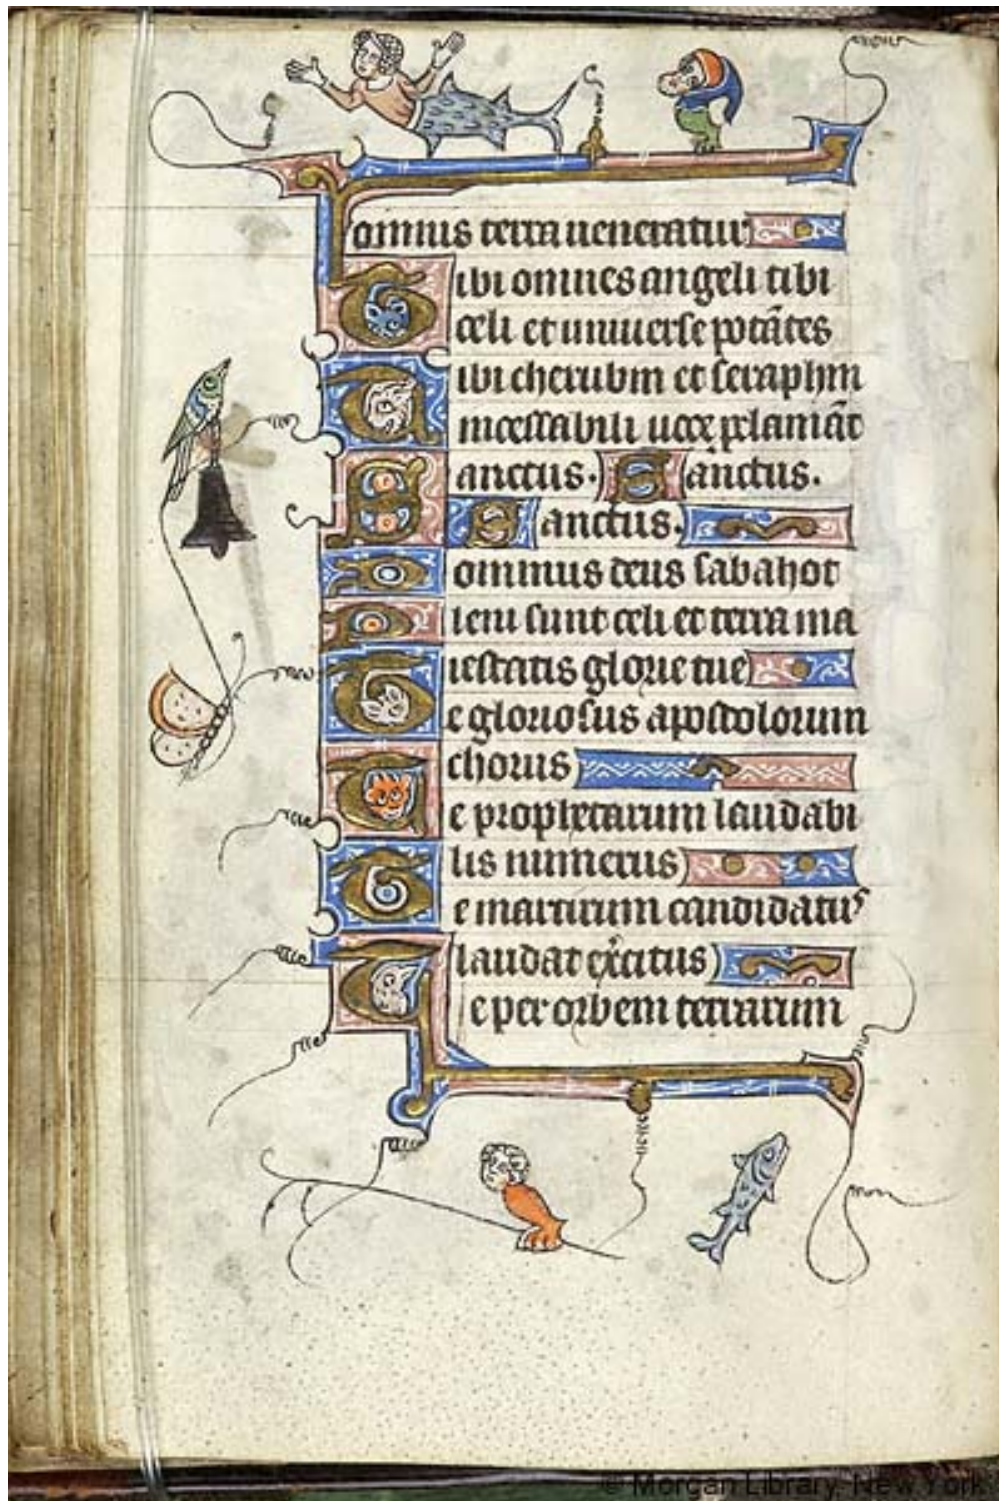 omnis terra ueneratur
Tibi omnes angeli tibi
celi et uniuerse potãtes
Tibi cherubin et seraphin
incessabili uoce ꝓclamãt
Sanctus. Sanctus.
Sanctus.
Dominus deus sabahot
Pleni sunt celi et terra ma
iestatis glorie tue
Te gloriosus apostolorum
chorus
Te prophetarum laudabi
lis numerus
Te martirum candidatus
laudat exercitus
Te per orbem terrarum
© Morgan Library, New York